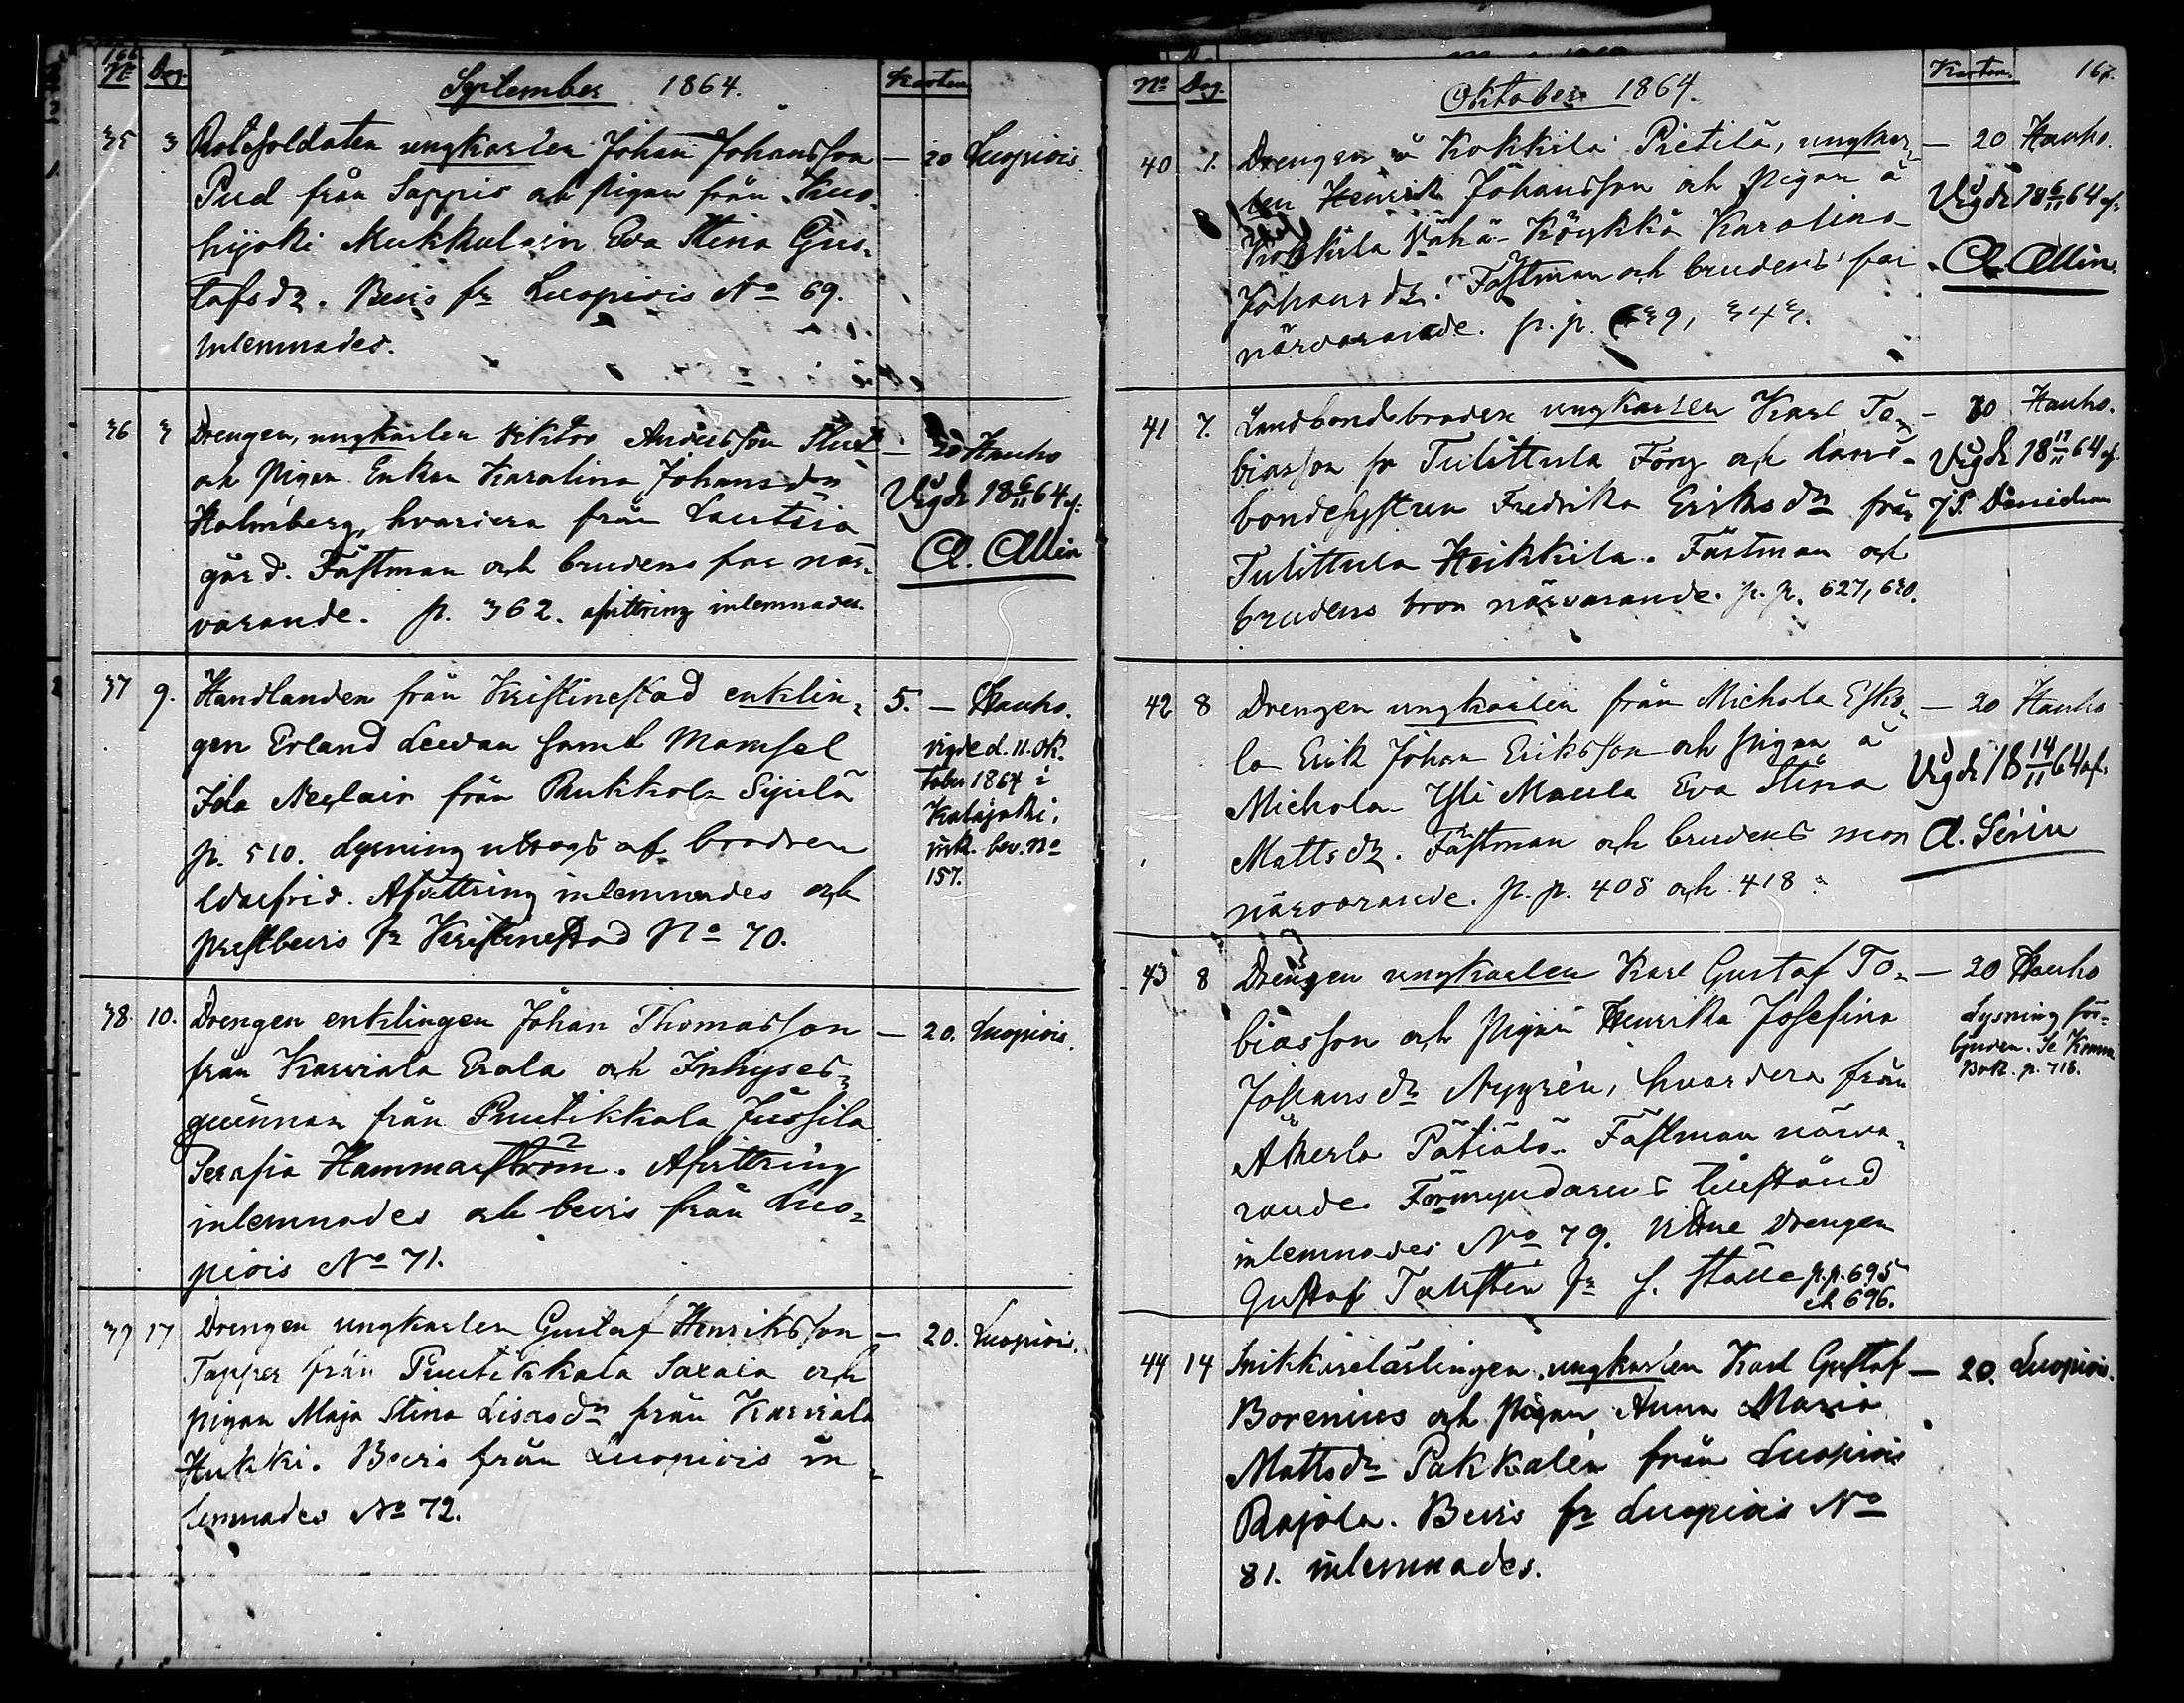 166.
No Dag. September 1864. Kasten
35 3 Rotesoldaten ungkarlen Johan Johansson — 20 Luopiois.
Pud från Sappis och pigan från Kuo-
hijoki Mukkulain Eva Stina Gus-
tafsdr. Bevis fr Luopiois No 69.
inlemnades.
36 3 Drengen, ungkarlen Viktor Andersson
och pigan Enkan Karolina Johansdr
Holmberg, hvardera från Lautsia
gård. Fästman och brudens far när-
varande. p. 362. afvittring inlemnades.
— 20 Hauho
Vigde 18 6/11 64 af
A. Allin
37 9. Handlanden från Kristinestad enklin-
gen Erland Leevan samt Mamsel
Ida Neglair från Rukkola Sipilä
p. 510. Lysning uttogs af brodren
Idarfrid. Afvittring inlemnades och
prestbevis fr Kristinestad No 70.
5. — Hauho.
vigde d. 11. Ok-
tober 1864 i
Kalajoki.
ink. bev. No
157.
38. 10. Drengen enklingen Johan Thomasson — 20. Luopiois.
från Karviala Erola och Inhyses-
qvinnan från Puutikkala Jussila
Serafia Hammarström. Afvittring
inlemnades och bevis från Luo-
piois No 71.
39 17 Drengen ungkarlen Gustaf Henriksson — 20. Luopiois.
Tapper från Puutikkala Saxala och
pigan Maja Stina Lisasdr från Karviala
Hukki. Bevis från Luopiois in-
lemnades No 72.
No Dag. Oktober 1864. Kasten. 167.
40 1. Drengen å Kokkila Pietilä, ungkar-
len Henrik Johansson och pigan å
Kokkila Vähä-Köykkä Karolina
Johansdr. Fästman och brudens far
närvarande. p.p. 339, 343.
— 20 Hauho.
Vigde 18 6/11 64 af
A. Allin.
41 7. Landbondebrodern ungkarlen Karl To-
biasson fr Tulittula Förg och lands-
bondesystren Fredrika Eriksdr från
Tulittula Heikkila. Fästman och
brudens bror närvarande. p.p. 627, 630.
— 20 Hauho.
Vigde 18 17/11 64 af
42 8 Drengen ungkarlen från Michola Esko-
la Erik Johan Eriksson och pigan å
Michola Yli Maula Eva Stina
Mattsdr. Fästman och brudens mor
närvarande. p.p. 408 och 418.
— 20 Hauho
Vigde 18 14/11 64 af
A. Serin
43 8 Drengen ungkarlen Karl Gustaf To-
biasson och pigan Henrika Josefina
Johansdr Nygrén, hvardera från
Akerla Pätiälä. Fästman närva-
rande. Förmyndarens tillstånd
inlemnades No 79. Vittne Drengen
Gustaf Tallstén fr s. ställe p.p. 695
ch 696.
— 20 Hauho
Lysning för-
bjuden. Se Komm
Bok. p. 718.
44 14 Snikkarelärlingen, ungkarlen Karl Gustaf — 20. Luopiois.
Borenius och pigan Anna Maria
Mattsdr Pakkalén från Luopiois
Rajala. Bevis fr Luopiois No
81. inlemnades.